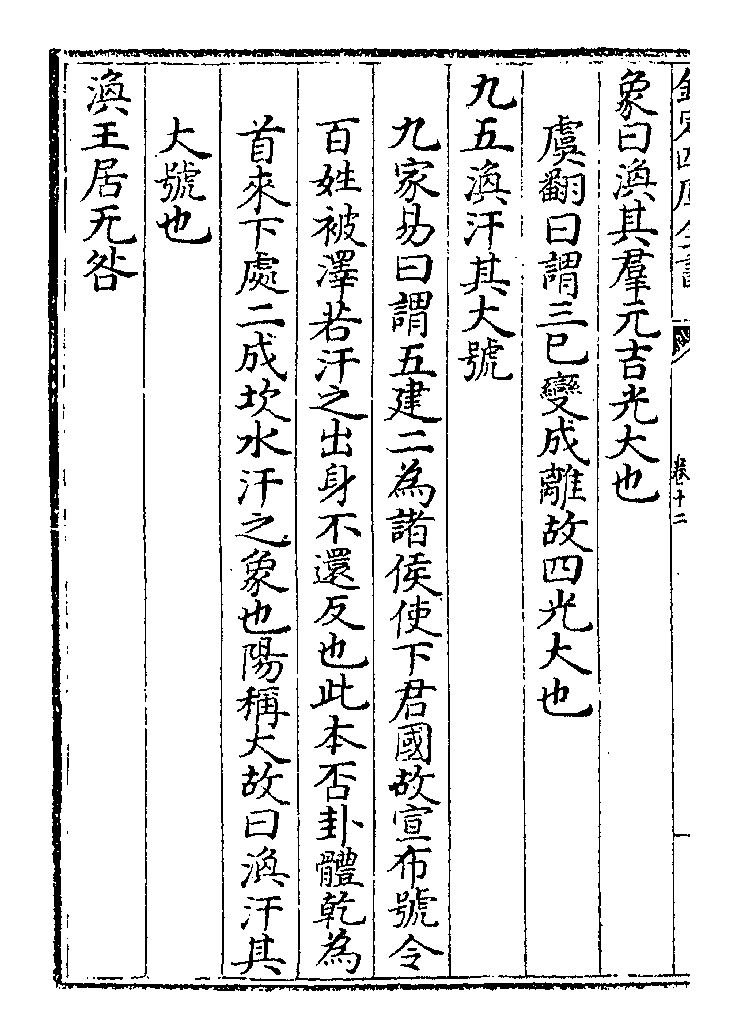 欽定四庫全書
卷十二
象曰渙其羣元吉光大也
虞翻曰謂三已變成離故四光大也
九五渙汗其大號
九家易曰謂五建二為諸侯使下君國故宣布號令
百姓被澤若汗之出身不還反也此本否卦體乾為
首來下處二成坎水汗之象也陽稱大故曰渙汗其
大號也
渙王居无咎